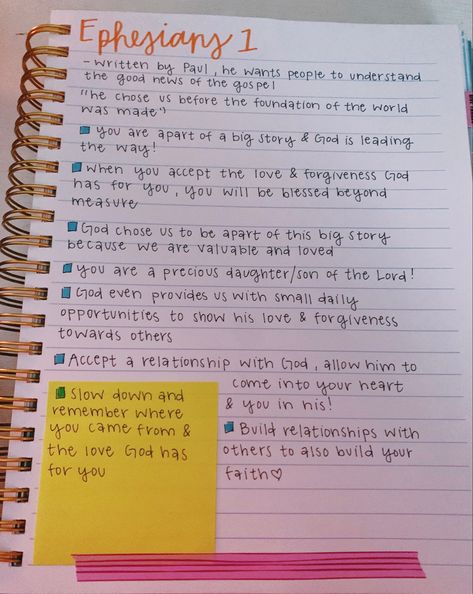 Ephesians 1
- written by Paul, he wants people to understand
the good news of the gospel
"he chose us before the foundation of the world
was made"
you are apart of a big story & God is leading
the way!
when you accept the love & forgiveness God
has for you, you will be blessed beyond
measure
God chose us to be apart of this big story
because we are valuable and loved
you are a precious daughter/son of the Lord!
God even provides us with small daily
opportunities to show his love & forgiveness
towards others
Accept a relationship with God, allow him to
come into your heart
& you in his!
Build relationships with
others to also build your
faith♡
Slow down and
remember where
you came from &
the love God has
for you